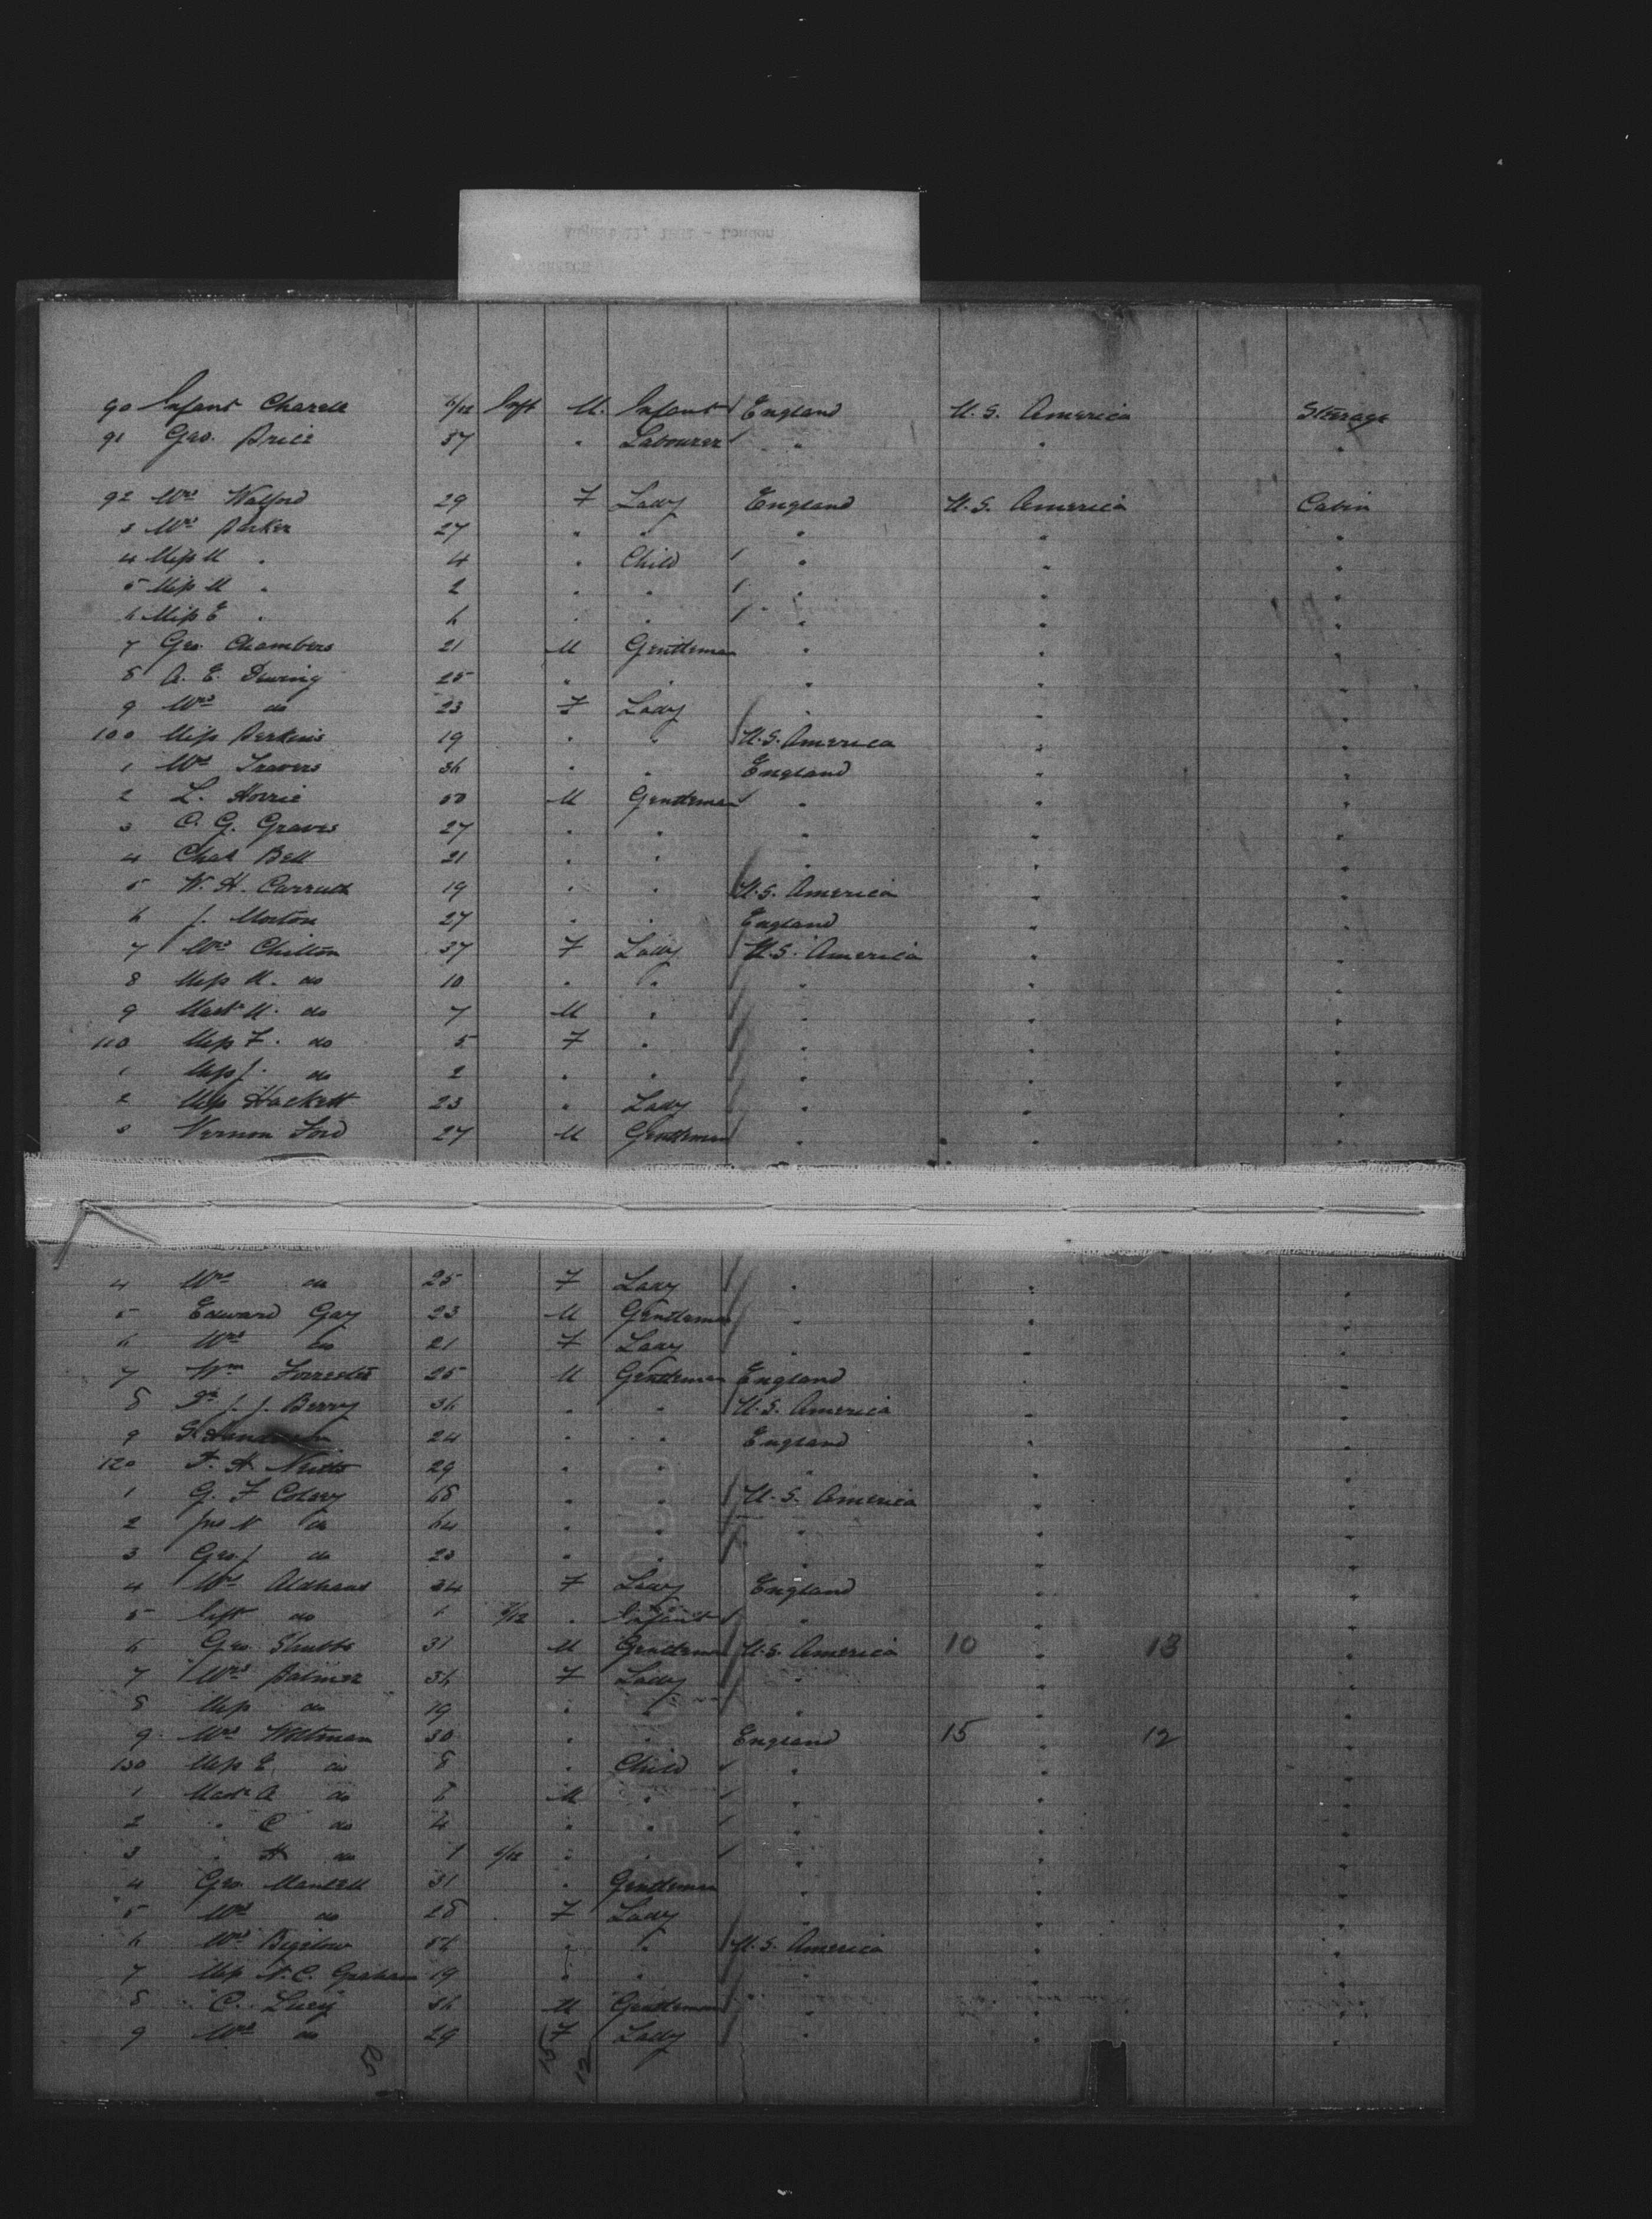 August 11, 1881 - London
90 Infant Charell 6/12 Inft M. Infant England U.S. America Steerage
91 Geo. Price 37 " Labourer " " "
92 Mrs Walford 29 F Lady England U.S. America Cabin
3 Mrs Parker 27 " " " " "
4 Miss M " 4 " Child " " "
5 Miss M " 2 " " " " "
6 Miss E " 6 " " " " "
7 Geo. Chambers 21 M Gentleman " " "
8 A. E. Dewing 25 " " " " "
9 Mrs do 23 F Lady " " "
100 Miss Perkins 19 " " U.S. America " "
1 Mrs Travers 36 " " England " "
2 L. Horrie 50 M Gentleman " " "
3 C. G. Graves 27 " " " " "
4 Chas Bell 21 " " " " "
5 W. H. Carruth 19 " " U.S. America " "
6 J. Morton 27 " " England " "
7 Mrs Chilton 37 F Lady U.S. America " "
8 Miss M. do 10 " " " " "
9 Mastr M. do 7 M " " " "
110 Miss F. do 5 F " " " "
1 Miss J. do 2 " " " " "
2 Miss Hackett 23 " Lady " " "
3 Vernon Ford 27 M Gentleman " " "
4 Mrs do 25 F Lady " " "
5 Edward Gay 23 M Gentleman " " "
6 Mrs do 21 F Lady " " "
7 Wm Forrester 25 M Gentleman England " "
8 Dr J. J. Berry 36 " " U.S. America " "
9 24 " " England " "
120 F. H. 29 " " " " "
1 G. F. 68 " " U.S. America " "
2 Jno N do 64 " " " " "
3 Geo. J do 23 " " " " "
4 Mrs 34 F Lady England " "
5 Inft do 1 6/12 " Infant " " "
6 Geo. Stubbs 31 M Gentleman U.S. America 10 " 13 "
7 Mrs Palmer 36 F Lady " " "
8 Miss do 19 " " " " "
9 Mrs Woltman 30 " " England 15 " 12 "
130 Miss E do 8 " Child " " "
1 Mastr A do 6 M " " " "
2 " C do 4 " " " " "
3 " H do 1 6/12 " " " " "
4 Geo. Mantell 31 " Gentleman " " "
5 Mrs do 28 F Lady " " "
6 Mrs Bigelow 56 " " U.S. America " "
7 Miss N. C. Graham 19 " " " " "
8 C. Lucy 36 M Gentleman " " "
9 Mrs do 29 F Lady " " "
50 15 12